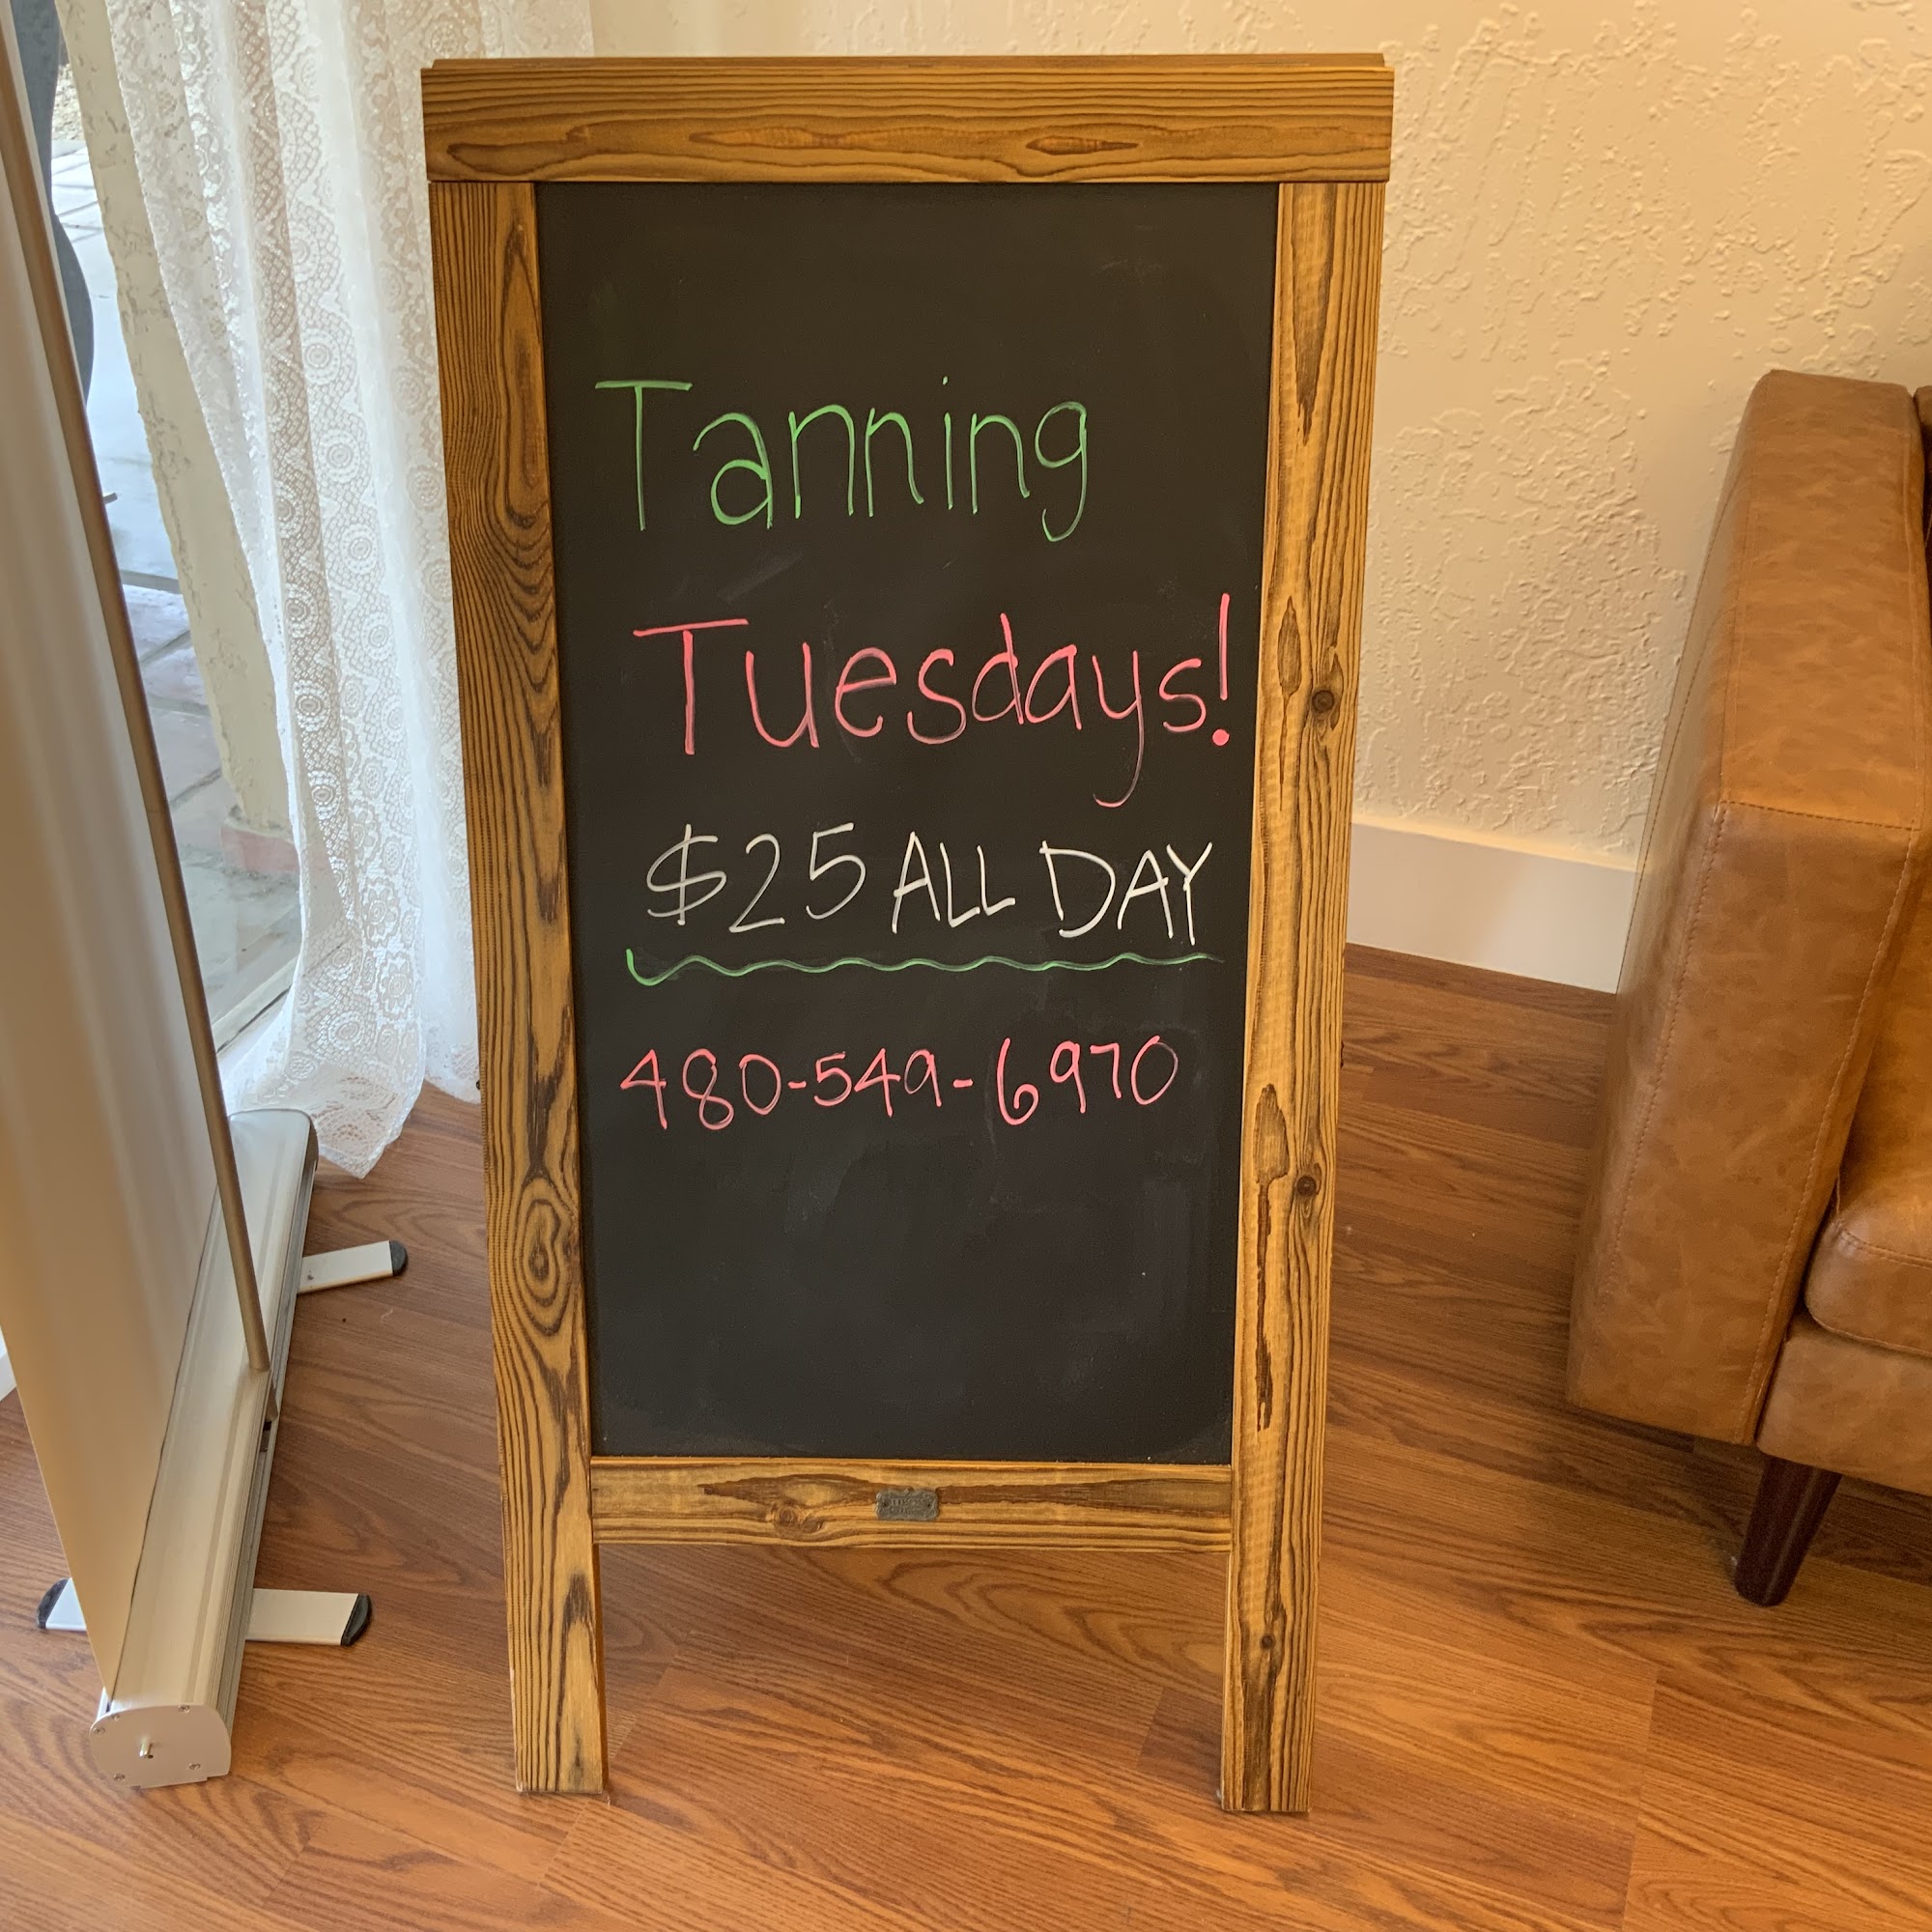 Tanning
Tuesdays!
$25 ALL DAY
480-549-6970